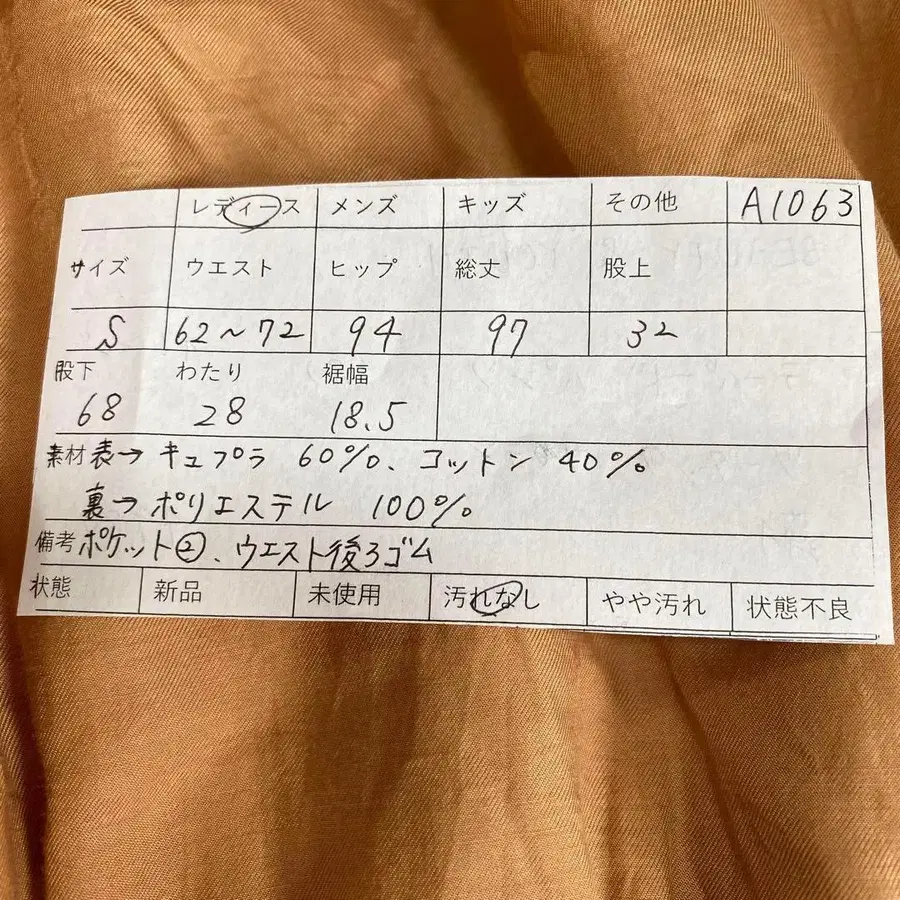 レディース メンズ キッズ その他 A1063
サイズ ウエスト ヒップ 総丈 股上
S 62～72 94 97 32
股下 わたり 裾幅
68 28 18.5
素材 表→キュプラ 60%、コットン 40%
裏→ポリエステル 100%
備考 ポケット②、ウエスト後ろゴム
状態 新品 未使用 汚れなし やや汚れ 状態不良